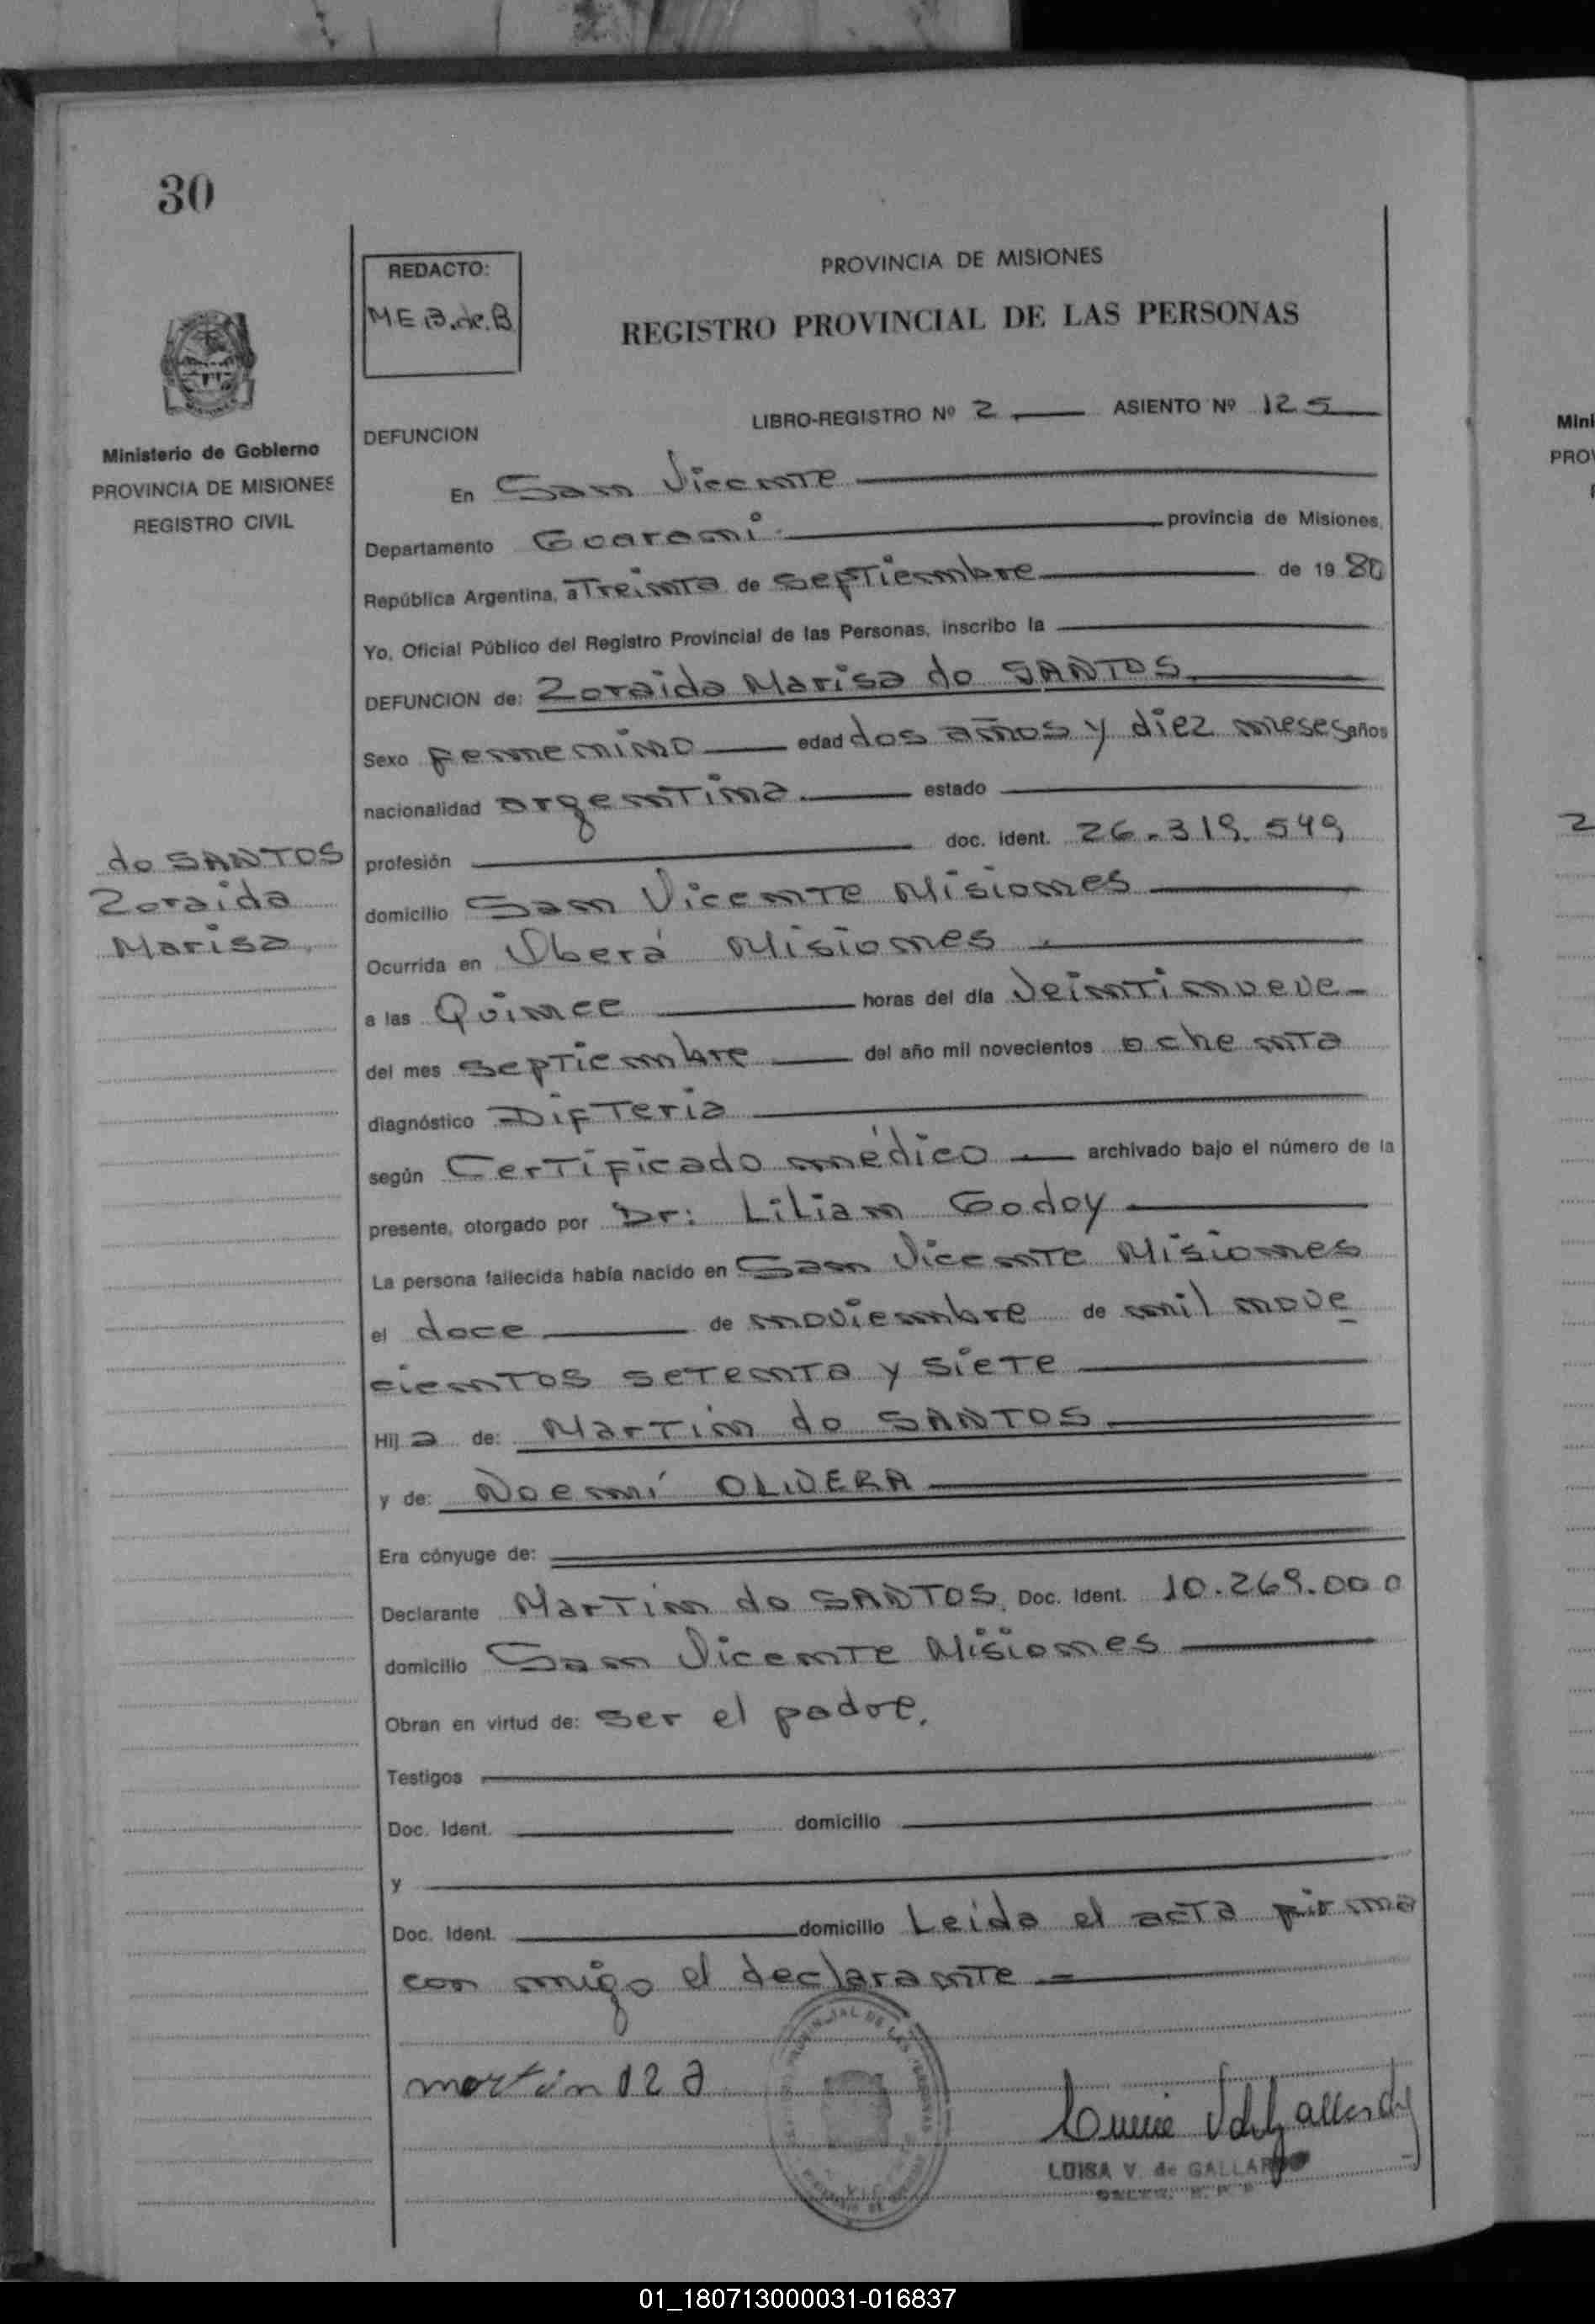 30
REDACTO:
ME B. de. B
PROVINCIA DE MISIONES
REGISTRO PROVINCIAL DE LAS PERSONAS
Ministerio de Gobierno
PROVINCIA DE MISIONES
REGISTRO CIVIL
LIBRO-REGISTRO Nº 2 ASIENTO Nº 125
DEFUNCION
En San Vicente
Departamento Guarani provincia de Misiones,
República Argentina, a Treinta de septiembre de 19 80
Yo, Oficial Público del Registro Provincial de las Personas, inscribo la
DEFUNCION de: Zoraida Marisa do SANTOS
Sexo femenino edad dos años y diez meses años
nacionalidad argentina estado
profesión doc. ident. 26.319.549
do SANTOS
Zoraida
Marisa
domicilio San Vicente Misiones
Ocurrida en Oberá Misiones
a las Quince horas del día Veintinueve
del mes septiembre del año mil novecientos ochenta
diagnóstico Difteria
según Certificado médico archivado bajo el número de la
presente, otorgado por Dr: Lilian Godoy
La persona fallecida había nacido en San Vicente Misiones
el doce de noviembre de mil nove
cientos setenta y siete
Hij a de: Martin do SANTOS
y de: Noemí OLIVERA
Era cónyuge de:
Declarante Martin do SANTOS. Doc. Ident. 10.269.000
domicilio San Vicente Misiones
Obran en virtud de: ser el padre.
Testigos
Doc. Ident. domicilio
y
Doc. Ident. domicilio Leida el acta firma
con migo el declarante
LUISA V. de GALLARDO
Mini
PRO
2
01_180713000031-016837